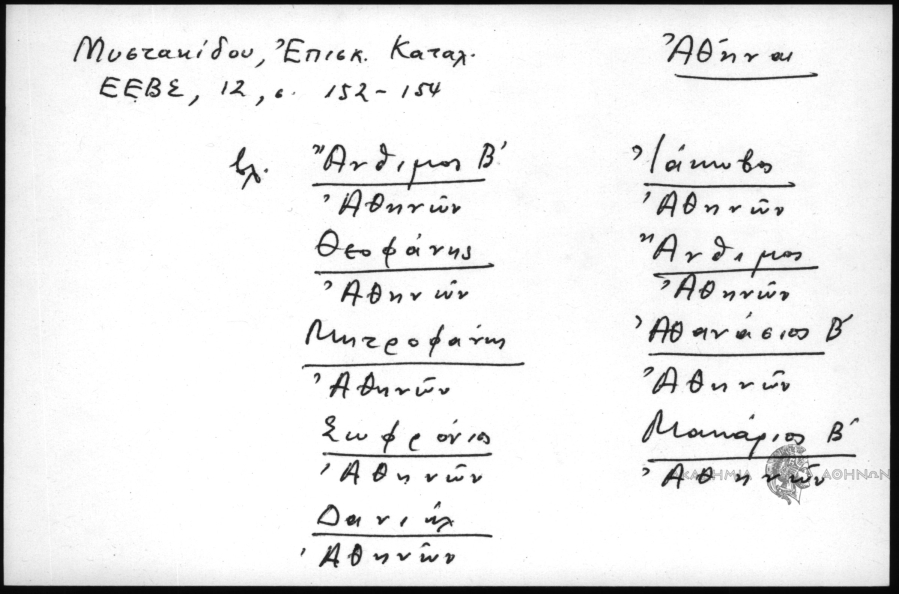 Μυστακίδου, Ἐπισκ. Καταλ.
ΕΕΒΣ, 12, σ. 152-154
Ἀθῆναι
βλ.
Ἄνθιμος Β΄
Ἀθηνῶν
Θεοφάνης
Ἀθηνῶν
Μητροφάνης
Ἀθηνῶν
Σωφρόνιος
Ἀθηνῶν
Δανιήλ
Ἀθηνῶν
Ἰάκωβος
Ἀθηνῶν
Ἄνθιμος
Ἀθηνῶν
Ἀθανάσιος Β΄
Ἀθηνῶν
Μακάριος Β΄
Ἀθηνῶν
ΑΚΑΔΗΜΙΑ ΑΘΗΝΩΝ